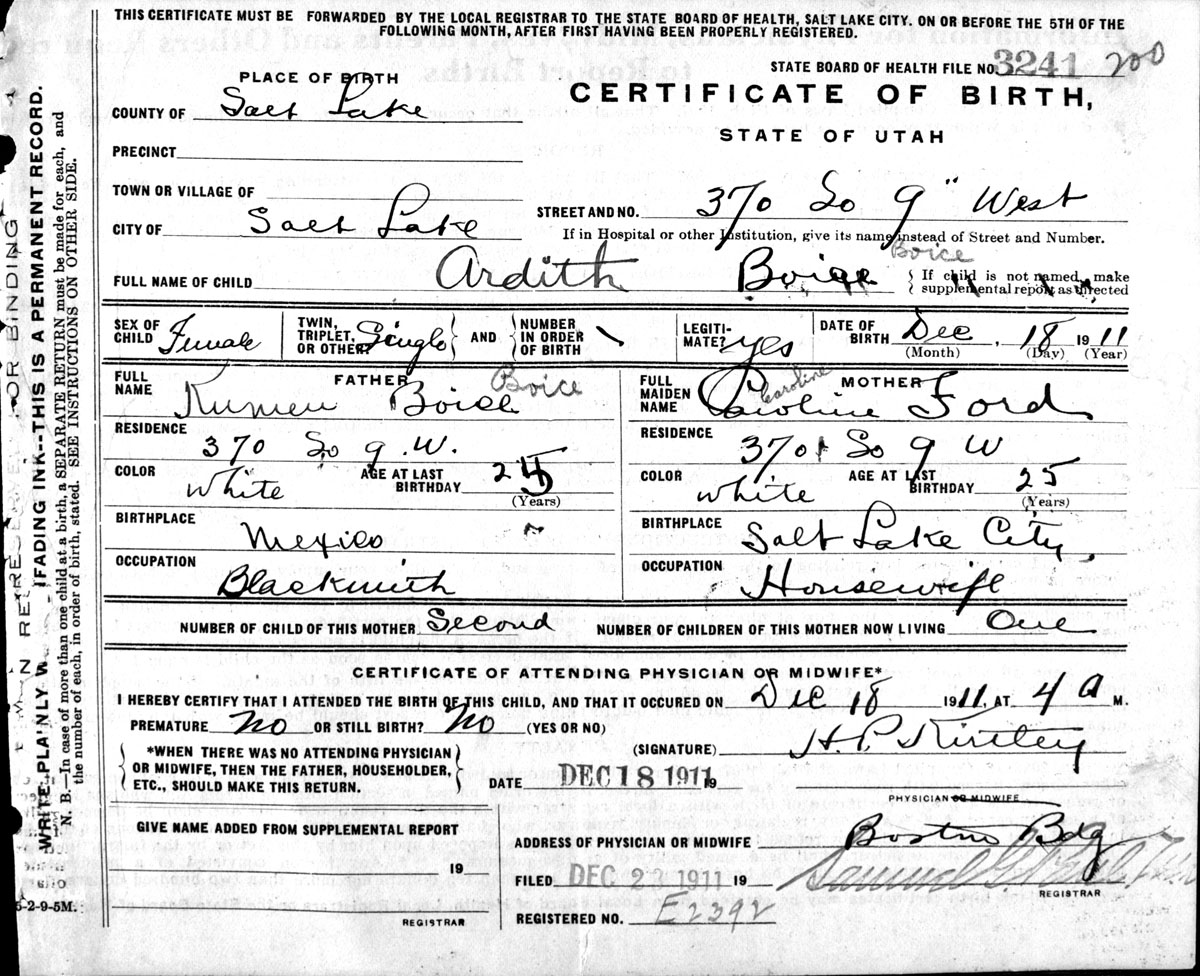 THIS CERTIFICATE MUST BE FORWARDED BY THE LOCAL REGISTRAR TO THE STATE BOARD OF HEALTH, SALT LAKE CITY. ON OR BEFORE THE 5TH OF THE
FOLLOWING MONTH, AFTER FIRST HAVING BEEN PROPERLY REGISTERED.
STATE BOARD OF HEALTH FILE NO. 3241 200
PLACE OF BIRTH
CERTIFICATE OF BIRTH,
STATE OF UTAH
COUNTY OF Salt Lake
PRECINCT
TOWN OR VILLAGE OF
STREET AND NO. 370 So 9" West
CITY OF Salt Lake
If in Hospital or other Institution, give its name instead of Street and Number.
Boice
FULL NAME OF CHILD Ardith Boice { If child is not named, make
supplemental report as directed
SEX OF CHILD Female
TWIN, TRIPLET, OR OTHER? Single AND NUMBER IN ORDER OF BIRTH
LEGITIMATE? yes
DATE OF BIRTH Dec, 18 1911
(Month) (Day) (Year)
FATHER
FULL NAME Kumen Boice Boice
RESIDENCE 370 So 9 W.
COLOR White AGE AT LAST BIRTHDAY 25
(Years)
BIRTHPLACE Mexico
OCCUPATION Blacksmith
MOTHER
FULL MAIDEN NAME Caroline Caroline Ford
RESIDENCE 370 So 9 W
COLOR White AGE AT LAST BIRTHDAY 25
(Years)
BIRTHPLACE Salt Lake City,
OCCUPATION Housewife
NUMBER OF CHILD OF THIS MOTHER Second NUMBER OF CHILDREN OF THIS MOTHER NOW LIVING One
CERTIFICATE OF ATTENDING PHYSICIAN OR MIDWIFE*
I HEREBY CERTIFY THAT I ATTENDED THE BIRTH OF THIS CHILD, AND THAT IT OCCURED ON Dec 18 1911, AT 4 a M.
PREMATURE No OR STILL BIRTH? No (YES OR NO)
*WHEN THERE WAS NO ATTENDING PHYSICIAN
OR MIDWIFE, THEN THE FATHER, HOUSEHOLDER,
ETC., SHOULD MAKE THIS RETURN.
(SIGNATURE) H. P. Kirtley
DATE DEC 18 1911 19
PHYSICIAN OR MIDWIFE
GIVE NAME ADDED FROM SUPPLEMENTAL REPORT
19
REGISTRAR
ADDRESS OF PHYSICIAN OR MIDWIFE Boston Bdg
FILED DEC 23 1911 19 Samuel G.
REGISTRAR
REGISTERED NO. E2392
OR BINDING
WRITE PLAINLY W IFADING INK--THIS IS A PERMANENT RECORD.
N. B.—In case of more than one child at a birth, a SEPARATE RETURN must be made for each, and
the number of each, in order of birth, stated. SEE INSTRUCTIONS ON OTHER SIDE.
5-2-9-5M.